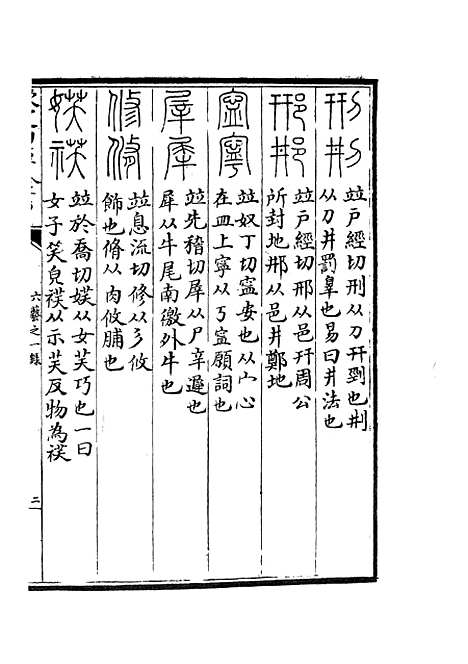 刑㓝
竝戸經切刑从刀幵剄也㓝
从刀井罰辠也易曰井法也
邢郱
竝戸經切邢从邑幵周公
所封地郱从邑井鄭地
寍寧
竝奴丁切寍安也从宀心
在皿上寧从丂寍願詞也
犀
竝先稽切犀从尸辛遟也
犀从牛尾南徼外牛也
修脩
竝息流切修从彡攸
飾也脩从肉攸脯也
媄祦
竝於喬切媄从女芺巧也一曰
女子笑皃祦从示芺反物為祦
六藝之一錄